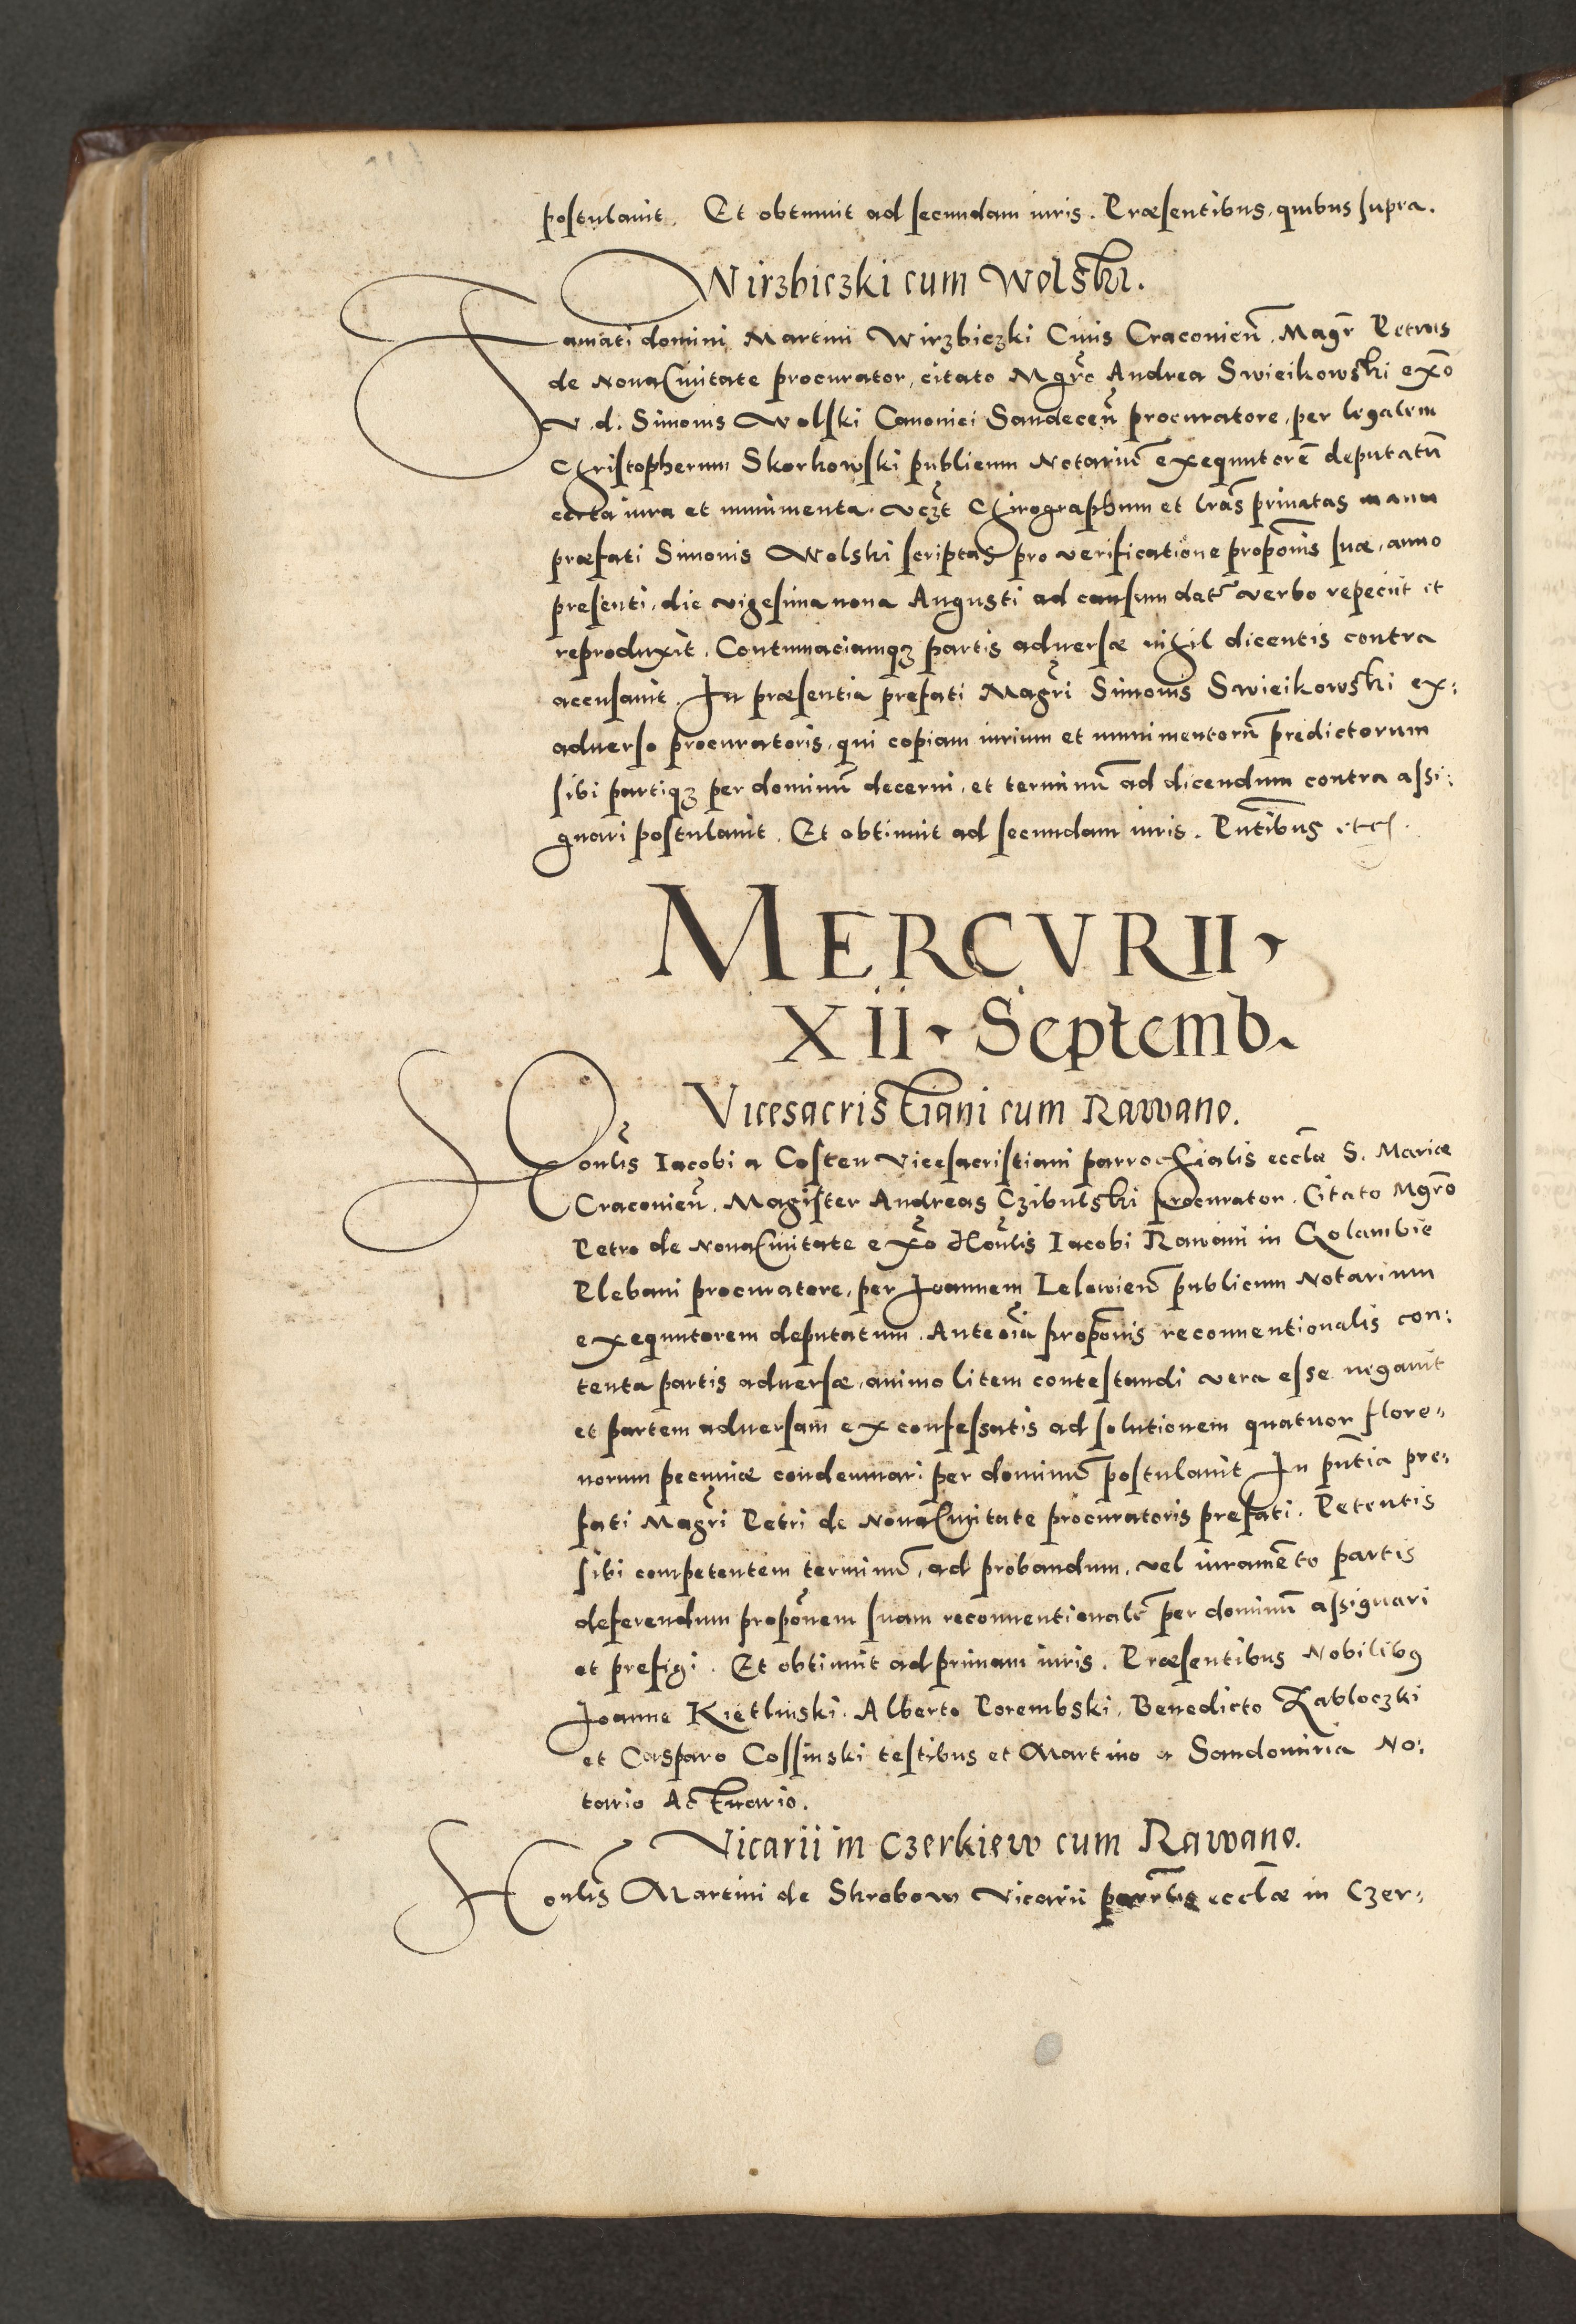 postulauit. Et obtinuit ad secundam iuris. Præsentibus, quibus supra.
Wirzbiczki cum Wolski.
Famati domini Martini Wirzbiczki Ciuis Cracouień. Magr̄ Petrus
de NouaCiuitate procurator, citato Mgr̄o Andrea Swieikowski exo͞
V. d. Simonis Wolski Canonici Sandeceń procuratore, per legalem
Christopherum Skorkowski publicum Notariu͞ exequutore͞ deputatu͞
certa iura et munimenta. vcz̄t Chirographum et lr̄as priuatas manu
præfati Simonis Wolski scriptas pro verificatione propōnis suæ, anno
presenti, die vigesima nona Augusti ad causam datr̄ verbo repeciit et
reproduxit. Contumaciamqz partis aduersæ nihil dicentis contra
accusauit. In præsentia prefati Magr̄i Simonis Swieikowski ex:
aduerso procuratoris, qui copiam iurium et munimentoru͞ predictorum
sibi partiqz per dominu͞ decerni, et terminu͞ ad dicendum contra assi:
gnari postulauit. Et obtinuit ad secundam iuris. Pn̄tibus etc.
MERCVRII.
XII. Septemb.
Vicesacristiani cum Rawano.
Honl̄is Iacobi a Costen Vicesacristiani parrochialis eccl̄æ S. Mariæ
Cracouień. Magister Andreas Czibulski procurator. Citato Mgr̄o
Petro de NouaCiuitate exo͞ Honl̄is Iacobi Rawani in Golambie
Plebani procuratore, per Joannem Lelowień publicum Notarium
exequutorem deputatum. Anteōia propōnis reconuentionalis con:
tenta partis aduersæ, animo litem contestandi vera esse negauit
et partem aduersam ex confessatis ad solutionem quatuor flore:
norum pecuniæ condemnari per dominu͞ postulauit. In pn̄tia pre:
fati Magr̄i Petri de NouaCiuitate procuratoris prefati. Petentis
sibi competentem terminu͞, ad probandum, vel iurame͞to partis
deferendum propōnem suam reconuentionale͞ per dominu͞ assignari
et prefigi. Et obtinuit ad primam iuris. Præsentibus Nobilibꝰ
Joanne Kietlinski. Alberto Porembski, Benedicto Zabloczki
et Casparo Cossinski testibus et Martino a Sandomiria No:
tario Actuario.
Vicarii in Czerkiew cum Rawano.
Honl̄is Martini de Skrobow Vicarii parr̄lis eccl̄æ in Czer: